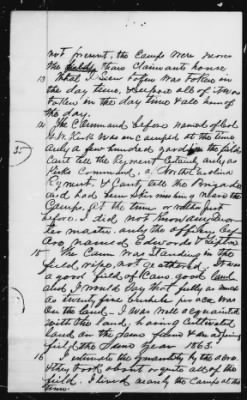 not present, the Camps were nearer
the than Claimants house
13 What I Seen tofen was tofen in
the day time, & Suppose all of it was
tofen in the day time & all hours of
the day.
14 The Command before named of Col
G.W. Kirk was encamped at the time
only a few hundred yards the field
Cant tell the Regment Certainly only as
Kirks Command, a North Carolina
Regment, & Cant tell the Brigade
and had been there near the
Camp, at the time or
before, I did not know any
or her master, only the officers
two named Edwords &
15 The Corn was Standing in the
field, ripe, not gathered, was
a good field of Corn good land
and I would Say that fully as much
as twenty five bushels per ace, was
on the land. I was well acquainted
with the land, having Cultivated
land on the Same farm & an adjoining
field the Same year 1863.
16 I estimate the quantity by the above
& they took about or quite all of the
field. I lived nearly the Camps at the
time